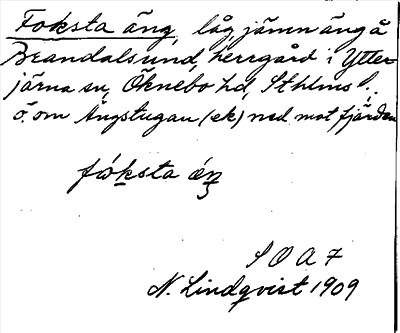 Foksta äng, låg, jämn äng å
Brandalsund, herrgård i Ytter-
järna sn, Öknebo hd, Sthlms l.
ö. om Ängstugan (ek) ned mot fjärden
fóksta
S O A 7
N. Lindqvist 1909